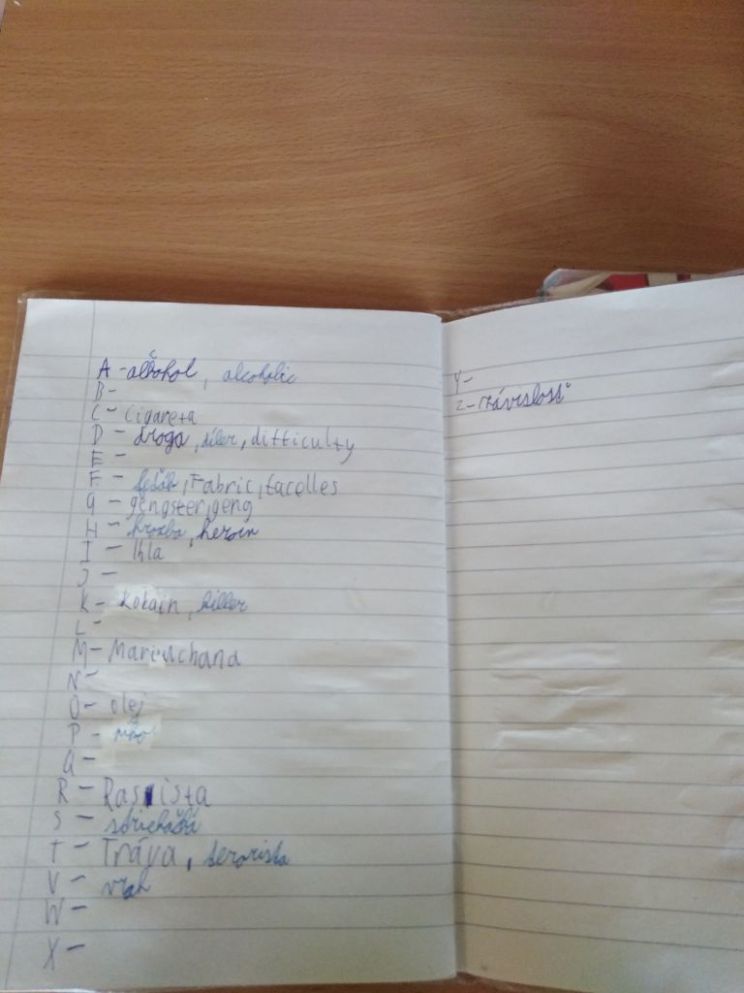 A - alkohol, alcoholic
B -
C - Cigareta
D - droga, díler, difficulty
E -
F - feťák, Fabric, facelles
G - gengster, geng
H - hrozba, heroin
I - Ihla
J -
K - Kokain, killer
L -
M - Mariuchand
N -
O - olej
P -
Q -
R - Rasista
S - striekačka
T - Tráva, terorista
V - vrah
W -
X -
Y -
Z - závislosť